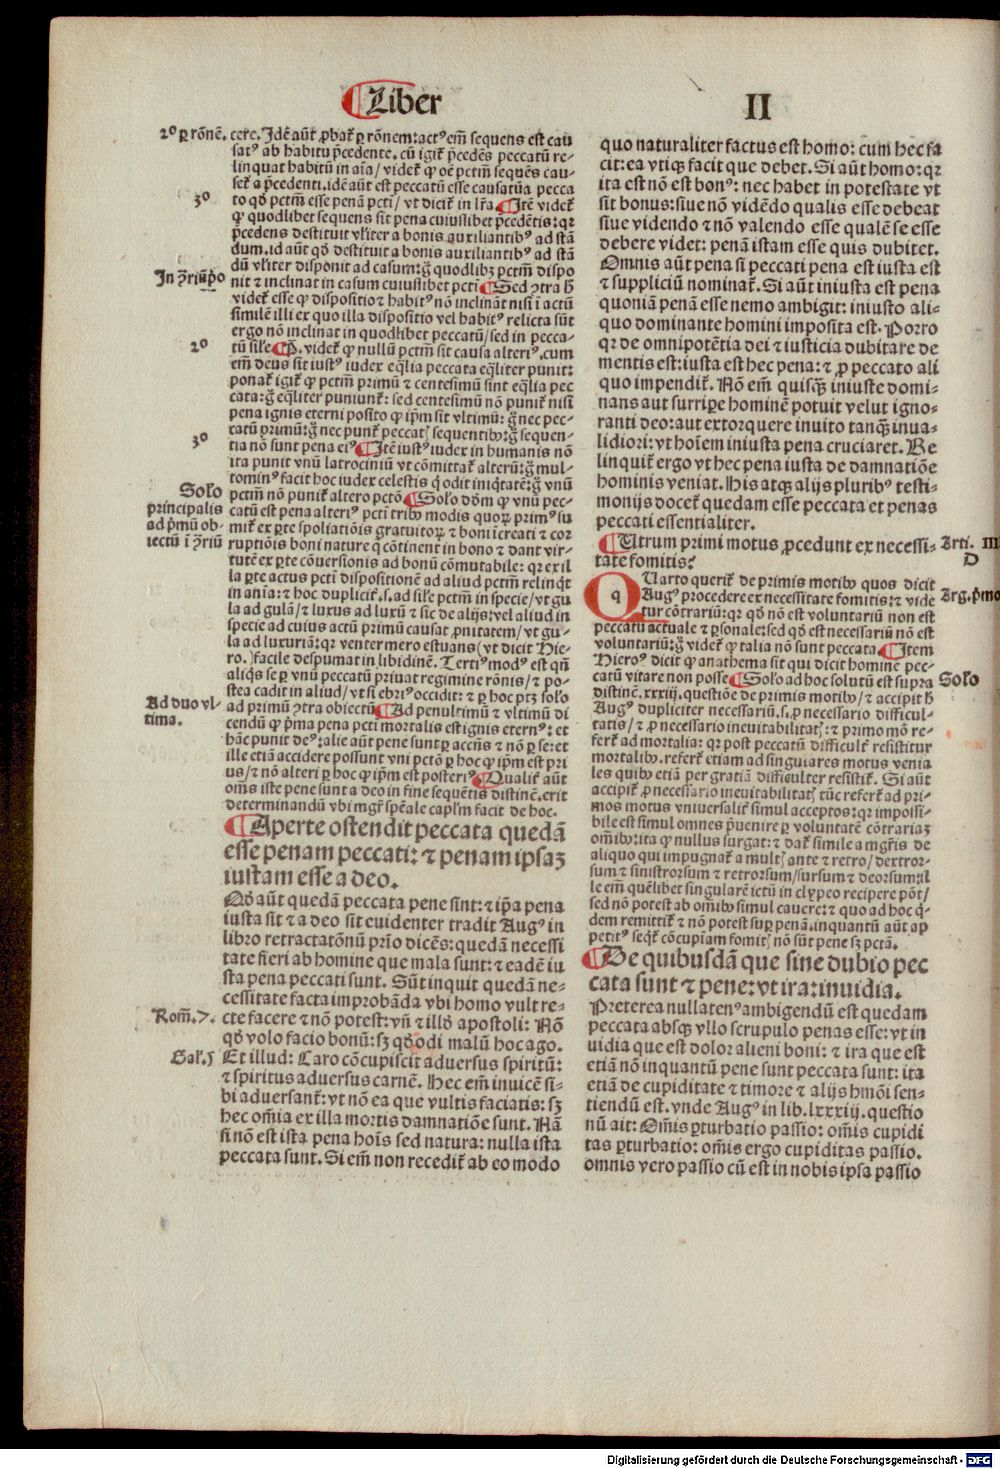 Liber
II
2º ꝑ rōnē. cere. Idē aūt ꝓbat᷑ ꝑ rōnem: actꝰ em̄ sequens est cau
satꝰ ab habitu p̄cedente. cū igit᷑ p̄cedēs peccatū re-
linquat habitū in aīa/ videt᷑ ꝙ oē pctm̄ sequēs cau-
set᷑ a p̄cedenti. idē aūt est peccatū esse causatū a pecca
3º
to qd̄ pctm̄ esse penā pcti/ vt dicit᷑ in lr̄a ¶ Itē videt᷑
ꝙ quodlibet sequens sit pena cuiuslibet p̄cedētis: qꝛ
p̄cedens destituit vl̄iter a bonis auxiliantibꝰ ad stā
dum. id aūt qd̄ destituit a bonis auxiliantibꝰ ad stā
dū vl̄iter disponit ad casum: g̊ quodlibꝫ pctm̄ dispo
In ꝯ̄riū pͦ
nit ⁊ inclinat in casum cuiuslibet pcti ¶ Sed ꝯtra h̄
videt᷑ esse ꝙ dispositio ⁊ habitꝰ nō inclināt nisi ī actū
similē illi ex quo illa dispositio vel habitꝰ relicta sūt
ergo nō inclinat in quodlibet peccatū/ sed in pecca-
2º
tū sil̄e ¶ P̄. videt᷑ ꝙ nullū pctm̄ sit causa alteriꝰ. cum
em̄ deus sit iustꝰ iudex eq̄lia peccata eq̄liter punit:
ponat᷑ igit᷑ ꝙ pctm̄ primū ⁊ centesimū sint eq̄lia pec
cata: g̊ eq̄liter puniunt᷑: sed centesimū nō punit᷑ nisi
pena ignis eterni posito ꝙ ip̄m sit vltimū: g̊ nec pec-
catū primū: g̊ nec punit᷑ peccatꝭ sequentibꝫ: g̊ sequen-
3º
tia nō sunt pena eiꝰ ¶ Itē iustꝰ iudex in humanis nō
ita punit vnū latrociniū vt cōmittat᷑ alterū: g̊ mul-
tominꝰ facit hoc iudex celestis q̄ odit iniq̄tatē: g̊ vnū
Solo
pctm̄ nō punit᷑ altero pctō ¶ Solo dōm ꝙ vnū pec-
principalis
catū est pena alteriꝰ pcti tribꝫ modis quoꝝ primꝰ su
ad p̄mū ob-
mit᷑ ex ꝑte spoliatiōis gratuitoꝝ ⁊ boni īcreati ⁊ cor
iectū ī ꝯ̄riū
ruptiōis boni nature q̄ cōtinent in bono ⁊ dant vir-
tutē ex ꝑte cōuersionis ad bonū cōmutabile: qꝛ ex il
la ꝑte actus pcti dispositionē ad aliud pctm̄ relinq̄t
in aīa: ⁊ hoc duplicit᷑. s. ad sil̄e pctm̄ in specie/ vt gu
la ad gulā/ ⁊ luxus ad luxū ⁊ sic de alijs: vel aliud in
specie ad cuius actū primū causat ꝓnitatem/ vt gu-
la ad luxuriā: qꝛ venter mero estuans (vt dicit Hie-
ro.) facile despumat in libidinē. Tertiꝰ modꝰ est qn̄
aliqͥs se ꝑ vnū peccatū priuat regimine rōnis/ ⁊ po-
stea cadit in aliud/ vt si ebriꝰ occidit: ⁊ ꝑ hoc ptꝫ solo
Ad duo vl-
ad primū ꝯtra obiectū ¶ Ad penultimū ⁊ vltimū di
tima.
cendū ꝙ p̄ma pena pcti mortalis est ignis eternꝰ: et
hāc punit deꝰ: alie aūt pene sunt ꝑ accn̄s ⁊ nō ꝑ se: et
ille etiā accidere possunt vni pctō ꝑ hoc ꝙ ip̄m est pri
us/ ⁊ nō alteri ꝑ hoc ꝙ ip̄m est posteriꝰ ¶ Qualit᷑ aūt
om̄s iste pene sunt a deo in fine sequētis distinē. erit
determinandū vbi mgr̄ spēale capl̄m facit de hoc.
¶ Aperte ostendit peccata quedā
esse penam peccati: ⁊ penam ipsaꝫ
iustam esse a deo.
Qd̄ aūt quedā peccata pene sint: ⁊ ip̄a pena
iusta sit ⁊ a deo sit euidenter tradit Augꝰ in
libro retractatōnū pr̄io dicēs: quedā necessi
tate fieri ab homine que mala sunt: ⁊ eadē iu
sta pena peccati sunt. Sūt inquit quedā ne-
cessitate facta improbāda vbi homo vult re-
Rom̄. 7.
cte facere ⁊ nō potest: vn̄ ⁊ illd̄ apostoli: Nō
qd̄ volo facio bonū: sꝫ qd̄ odi malū hoc ago.
Gal. 5
Et illud: Caro cōcupiscit aduersus spiritū:
⁊ spiritus aduersus carnē. Hec em̄ inuicē si-
bi aduersant᷑: vt nō ea que vultis faciatis: sꝫ
hec om̄ia ex illa mortis damnatiōe sunt. Nā
si nō est ista pena hoīs sed natura: nulla ista
peccata sunt. Si em̄ non recedit᷑ ab eo modo
quo naturaliter factus est homo: cum hec fa
cit: ea vtiqꝫ facit que debet. Si aūt homo: qꝛ
ita est nō est bonꝰ: nec habet in potestate vt
sit bonus: siue nō vidēdo qualis esse debeat
siue videndo ⁊ nō valendo esse qualē se esse
debere videt: penā istam esse quis dubitet.
Omnis aūt pena si peccati pena est iusta est
⁊ suppliciū nominat᷑. Si aūt iniusta est pena
quoniā penā esse nemo ambigit: iniusto ali-
quo dominante homini imposita est. Porro
qꝛ de omnipotētia dei ⁊ iusticia dubitare de
mentis est: iusta est hec pena: ⁊ ꝓ peccato ali
quo impendit᷑. Nō em̄ quisqꝫ iniuste domi-
nans aut surripe hominē potuit velut igno-
ranti deo: aut extorquere inuito tanqꝫ inua-
lidiori: vt hoīem iniusta pena cruciaret. Re
linquit᷑ ergo vt hec pena iusta de damnatiōe
hominis veniat. His atqꝫ alijs pluribꝰ testi-
monijs docet᷑ quedam esse peccata et penas
peccati essentialiter.
¶ Utrum primi motus ꝓcedunt ex necessi-
Arti. III
tate fomitis?
D
Quarto querit᷑ de primis motibꝫ quos dicit
Augꝰ procedere ex necessitate fomitis: ⁊ vide
Arg. p̄mo
tur cōtrariū: qꝛ qd̄ nō est voluntariū non est
peccatū actuale ⁊ ꝑsonale: sed qd̄ est necessariū nō est
voluntariū: g̊ videt᷑ ꝙ talia nō sunt peccata. ¶ Item
Hieroꝰ dicit ꝙ anathema sit qui dicit hominē pec-
catū vitare non posse ¶ Solo ad hoc solutū est supra
Solo
distinē. xxxij. questiōe de primis motibꝫ/ ⁊ accipit h̄
Augꝰ dupliciter necessariū. s. ꝓ necessario difficul-
tatis/ ⁊ ꝓ necessario ineuitabilitatꝭ: ⁊ primo mō re-
fert᷑ ad mortalia: qꝛ post peccatū difficult᷑ resistitur
mortalibꝫ. refert᷑ etiam ad singulares motus venia
les quibꝫ etiā per gratiā difficulter resistit᷑. Si aūt
accipit᷑ ꝓ necessario ineuitabilitatꝭ tūc refert᷑ ad pri-
mos motus vniuersalit᷑ simul acceptos: qꝛ impossi-
bile est simul omnes p̄uenire ꝑ voluntatē cōtrariaꝫ
om̄ibꝫ: ita ꝙ nullus surgat: ⁊ dat᷑ simile a mgr̄is de
aliquo qui impugnat᷑ a multꝭ ante ⁊ retro/ dextror-
sum ⁊ sinistrorsum ⁊ retrorsum/ sursum ⁊ deorsum: il
le em̄ quēlibet singularē ictū in clypeo recipere pōt/
sed nō potest ab om̄ibꝫ simul cauere: ⁊ quo ad hoc q̄-
dem remittit᷑ ⁊ nō potest suꝑ penā. inquantū aūt ap
petitꝰ seqt᷑ cōcupiam fomitꝭ nō sūt pene sꝫ pctā.
¶ De quibusdā que sine dubio pec
cata sunt ⁊ pene: vt ira: inuidia.
Preterea nullatenꝰ ambigendū est quedam
peccata absqꝫ vllo scrupulo penas esse: vt in
uidia que est dolor alieni boni: ⁊ ira que est
etiā nō inquantū pene sunt peccata sunt: ita
etiā de cupiditate ⁊ timore ⁊ alijs hmōi sen-
tiendū est. vnde Augꝰ in lib. lxxxiij. questio
nū ait: Om̄is ꝑturbatio passio: om̄is cupidi
tas ꝑturbatio: om̄is ergo cupiditas passio.
omnis vero passio cū est in nobis ipsa passio
Digitalisierung gefördert durch die Deutsche Forschungsgemeinschaft - DFG